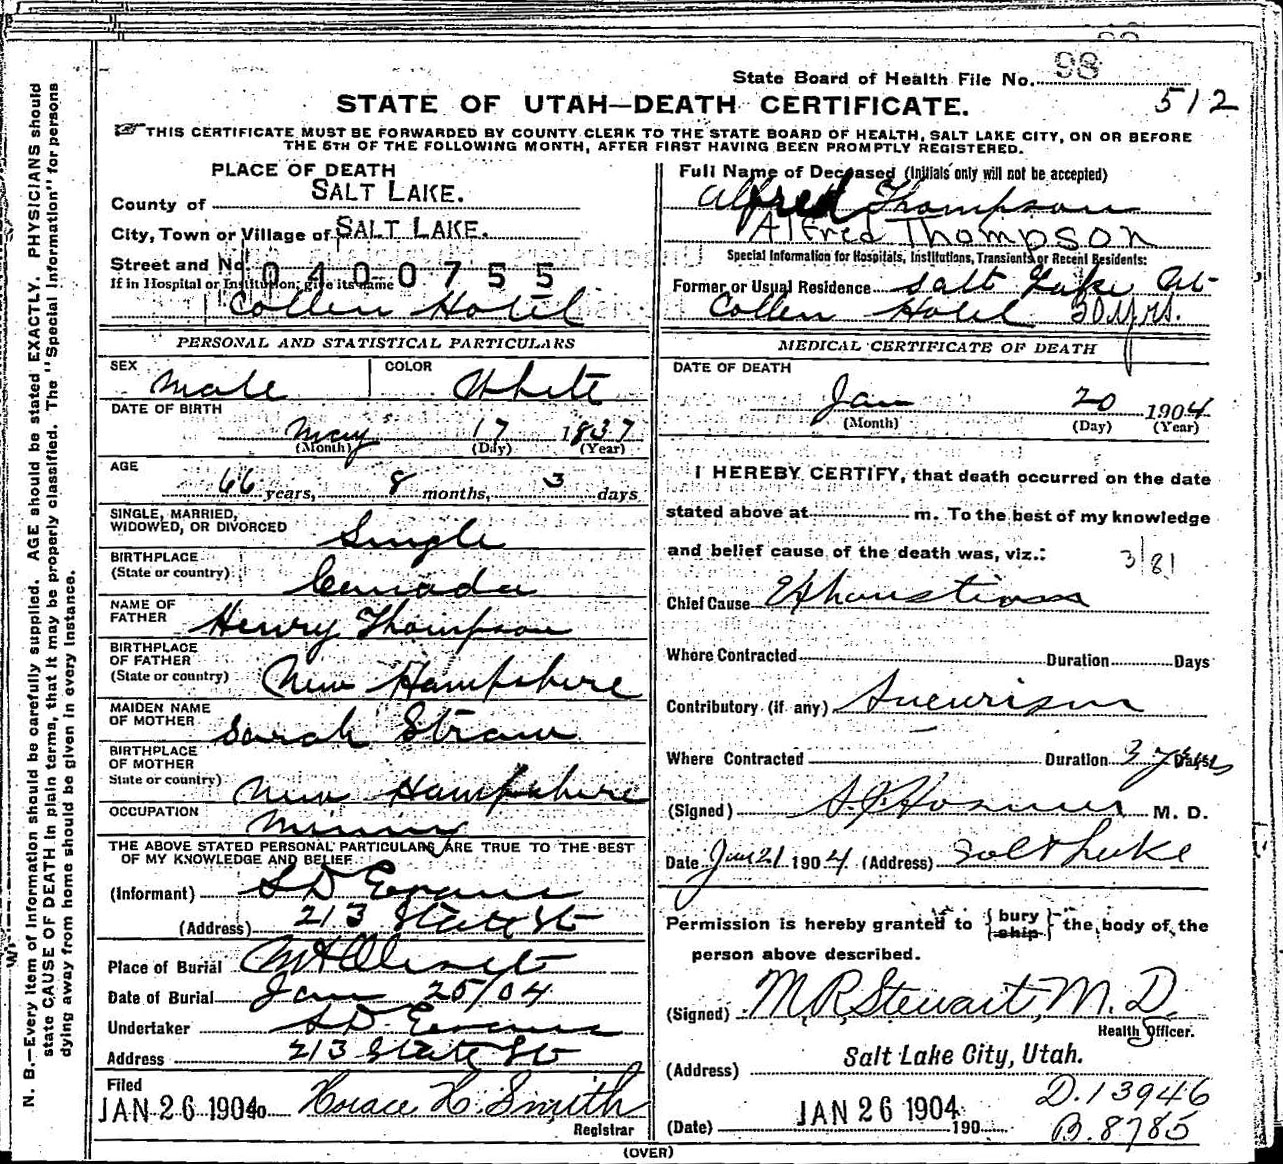 State Board of Health File No. 98
512
STATE OF UTAH—DEATH CERTIFICATE.
THIS CERTIFICATE MUST BE FORWARDED BY COUNTY CLERK TO THE STATE BOARD OF HEALTH, SALT LAKE CITY, ON OR BEFORE
THE 5TH OF THE FOLLOWING MONTH, AFTER FIRST HAVING BEEN PROMPTLY REGISTERED.
N. B.—Every item of information should be carefully supplied. AGE should be stated EXACTLY. PHYSICIANS should
state CAUSE OF DEATH in plain terms, that it may be properly classified. The "Special Information" for persons
dying away from home should be given in every instance.
PLACE OF DEATH
County of SALT LAKE.
City, Town or Village of SALT LAKE.
Street and No. 0400755
If in Hospital or Institution, give its name
Collen Hotel
PERSONAL AND STATISTICAL PARTICULARS
SEX Male COLOR White
DATE OF BIRTH
May 17 1837
(Month) (Day) (Year)
AGE
66 years, 8 months, 3 days
SINGLE, MARRIED,
WIDOWED, OR DIVORCED Single
BIRTHPLACE
(State or country) Canada
NAME OF
FATHER Henry Thompson
BIRTHPLACE
OF FATHER
(State or country) New Hampshire
MAIDEN NAME
OF MOTHER Sarah Straw
BIRTHPLACE
OF MOTHER
State or country) New Hampshire
OCCUPATION
Mining
THE ABOVE STATED PERSONAL PARTICULARS ARE TRUE TO THE BEST
OF MY KNOWLEDGE AND BELIEF.
(Informant) S D Evans
(Address) 213 State St
Place of Burial Mt Olivet
Date of Burial Jan 25/04
Undertaker S D Evans
Address 213 State St
Filed
JAN 26 1904 190 Horace H. Smith
Registrar
Full Name of Deceased (Initials only will not be accepted)
Alfred Thompson
Alfred Thompson
Special Information for Hospitals, Institutions, Transients or Recent Residents:
Former or Usual Residence Salt Lake Cit
Collen Hotel 30 yrs.
MEDICAL CERTIFICATE OF DEATH
DATE OF DEATH
Jan 20 1904
(Month) (Day) (Year)
I HEREBY CERTIFY, that death occurred on the date
stated above at m. To the best of my knowledge
and belief cause of the death was, viz.: 3/81
Chief Cause Exhaustion
Where Contracted Duration Days
Contributory (if any) Aneurism
Where Contracted Duration 3 years Days
(Signed) M. D.
Date Jan 21 1904 (Address) Salt Lake
Permission is hereby granted to {bury ship} the body of the
person above described.
(Signed) M R Stewart, M. D.
Health Officer.
(Address) Salt Lake City, Utah.
D. 13946
(Date) JAN 26 1904 190
B. 8785
(OVER)